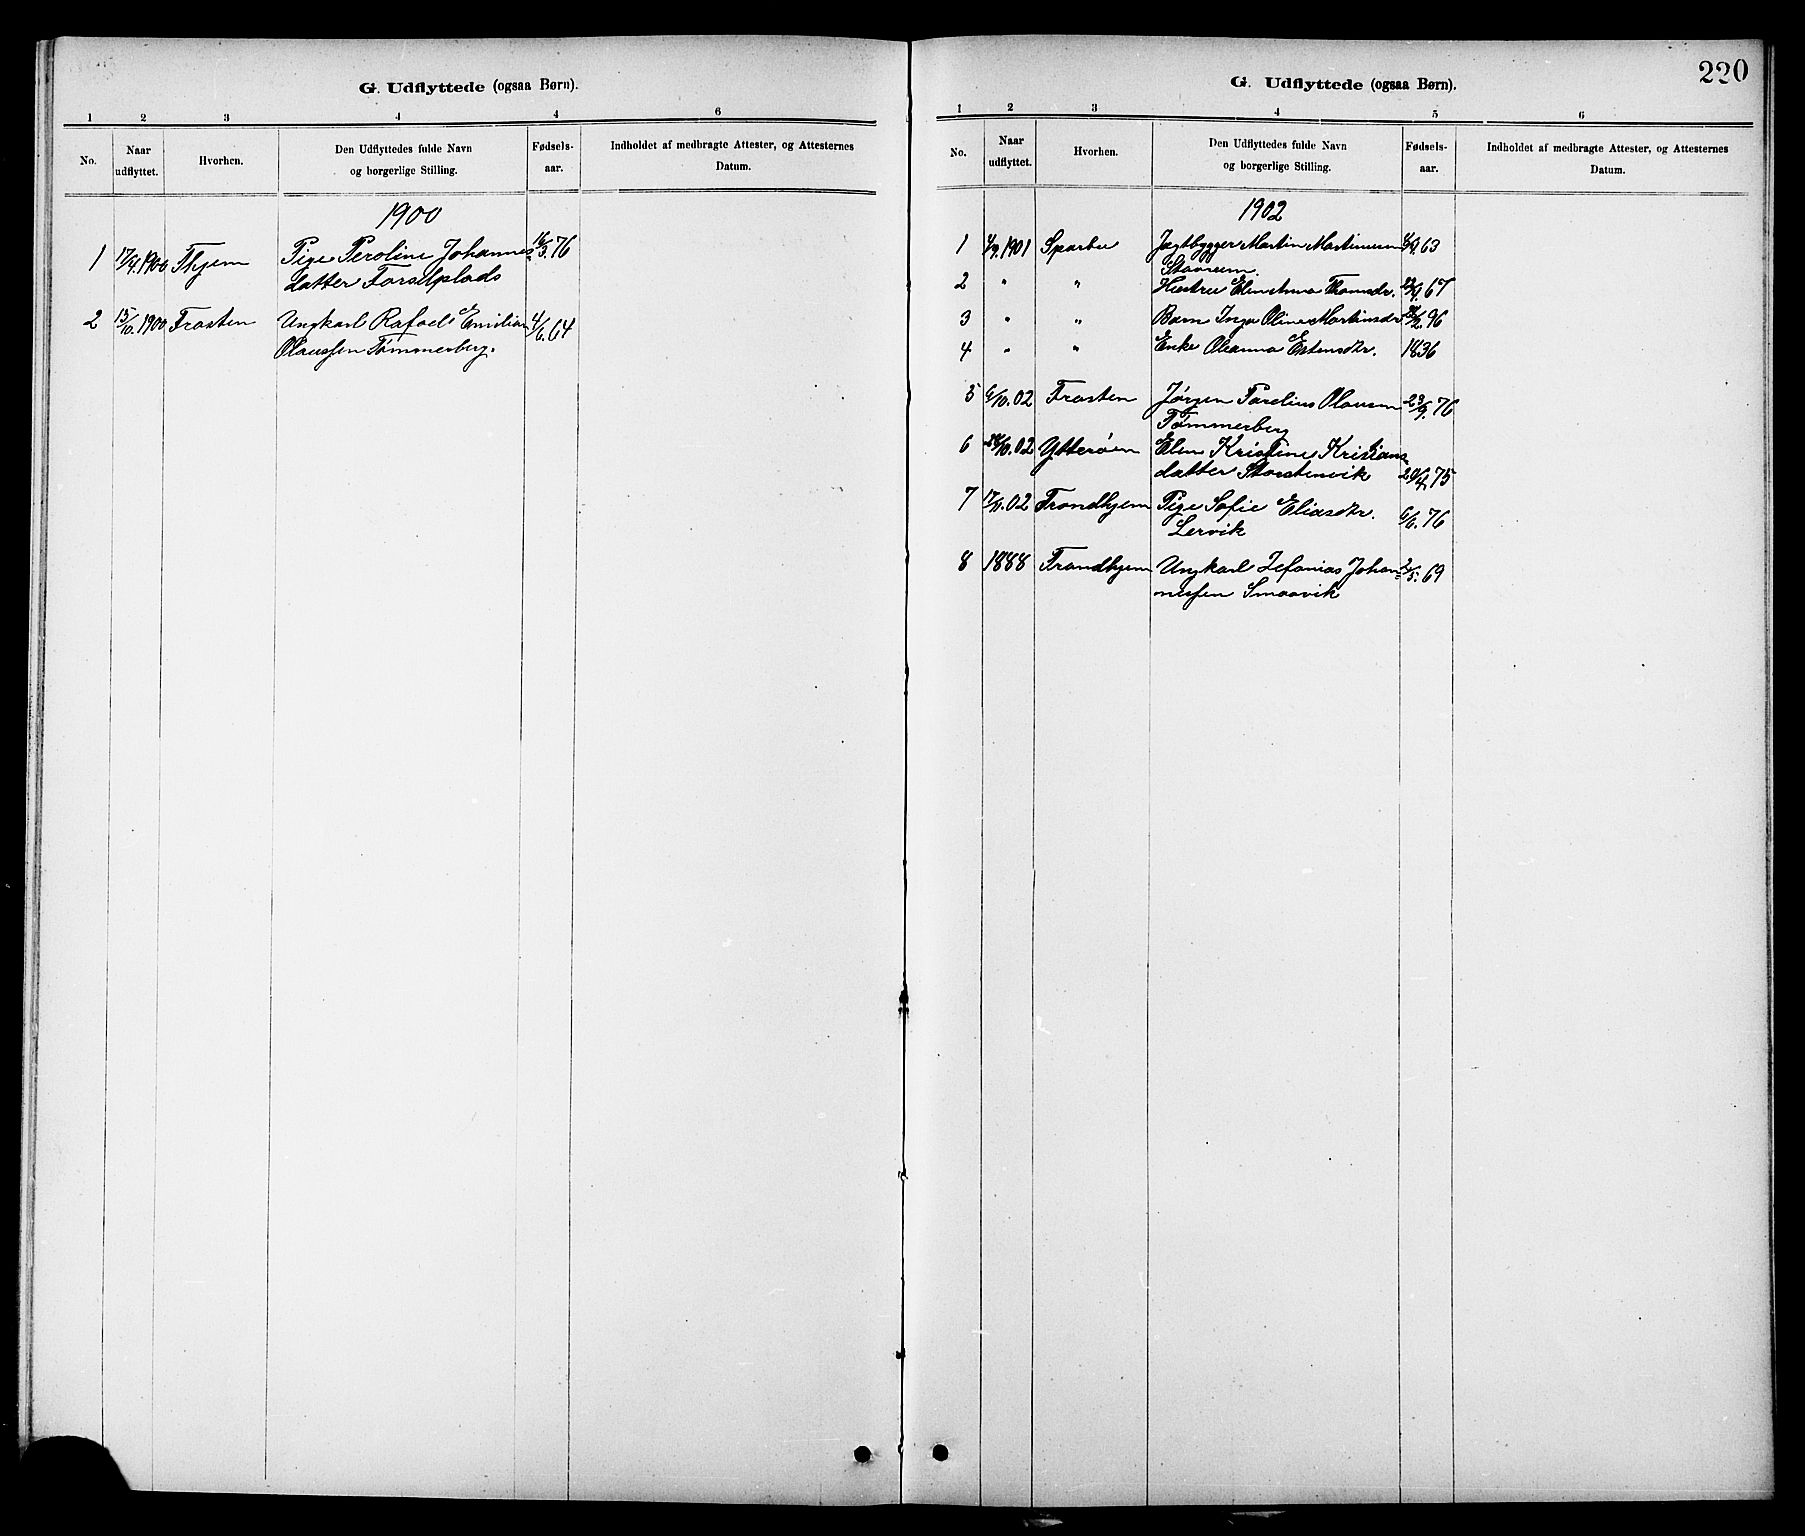 G. Udflyttede (ogsaa Børn).
1 2 3 4 4 6
No. Naar udflyttet. Hvorhen. Den Udflyttedes fulde Navn og borgerlige Stilling. Fødsels-aar. Indholdet af medbragte Attester, og Attesternes Datum.
1900
1 17/4.1900 Thjem Pige Peroline Johannes- 16/3.76
datter Forselplads
2 15/10.1900 Frosten Ungkarl Rafael Emilian 4/6.64
Olaussen Tømmerberg.
220
G. Udflyttede (ogsaa Børn).
1 2 3 4 5 6
No. Naar udflyttet. Hvorhen. Den Udflyttedes fulde Navn og borgerlige Stilling. Fødsels-aar. Indholdet af medbragte Attester, og Attesternes Datum.
1902
1 1901 Sparbu Jagtbygger Martin Martinsen 63
Stavrum.
2 " " Hustru Elen Anna Thomsdr. 67
3 " " Barn Inga Oline Martinsdr. 96
4 " " Enke Oleanna Estensdtr. 1836
5 6/10.02 Frosten Jørgen Parelius Olausen 23/9.76
Tømmerberg
6 /10.02 Ytterøen Elen Kristine Kristians-
datter Storstenvik 75
7 02 Trondhjem Pige Sofie Eliasdtr. 6/6.76
Lervik
8 1888 Trondhjem Ungkarl Zefanias Johan- 2/5.69
nessen Smaavik